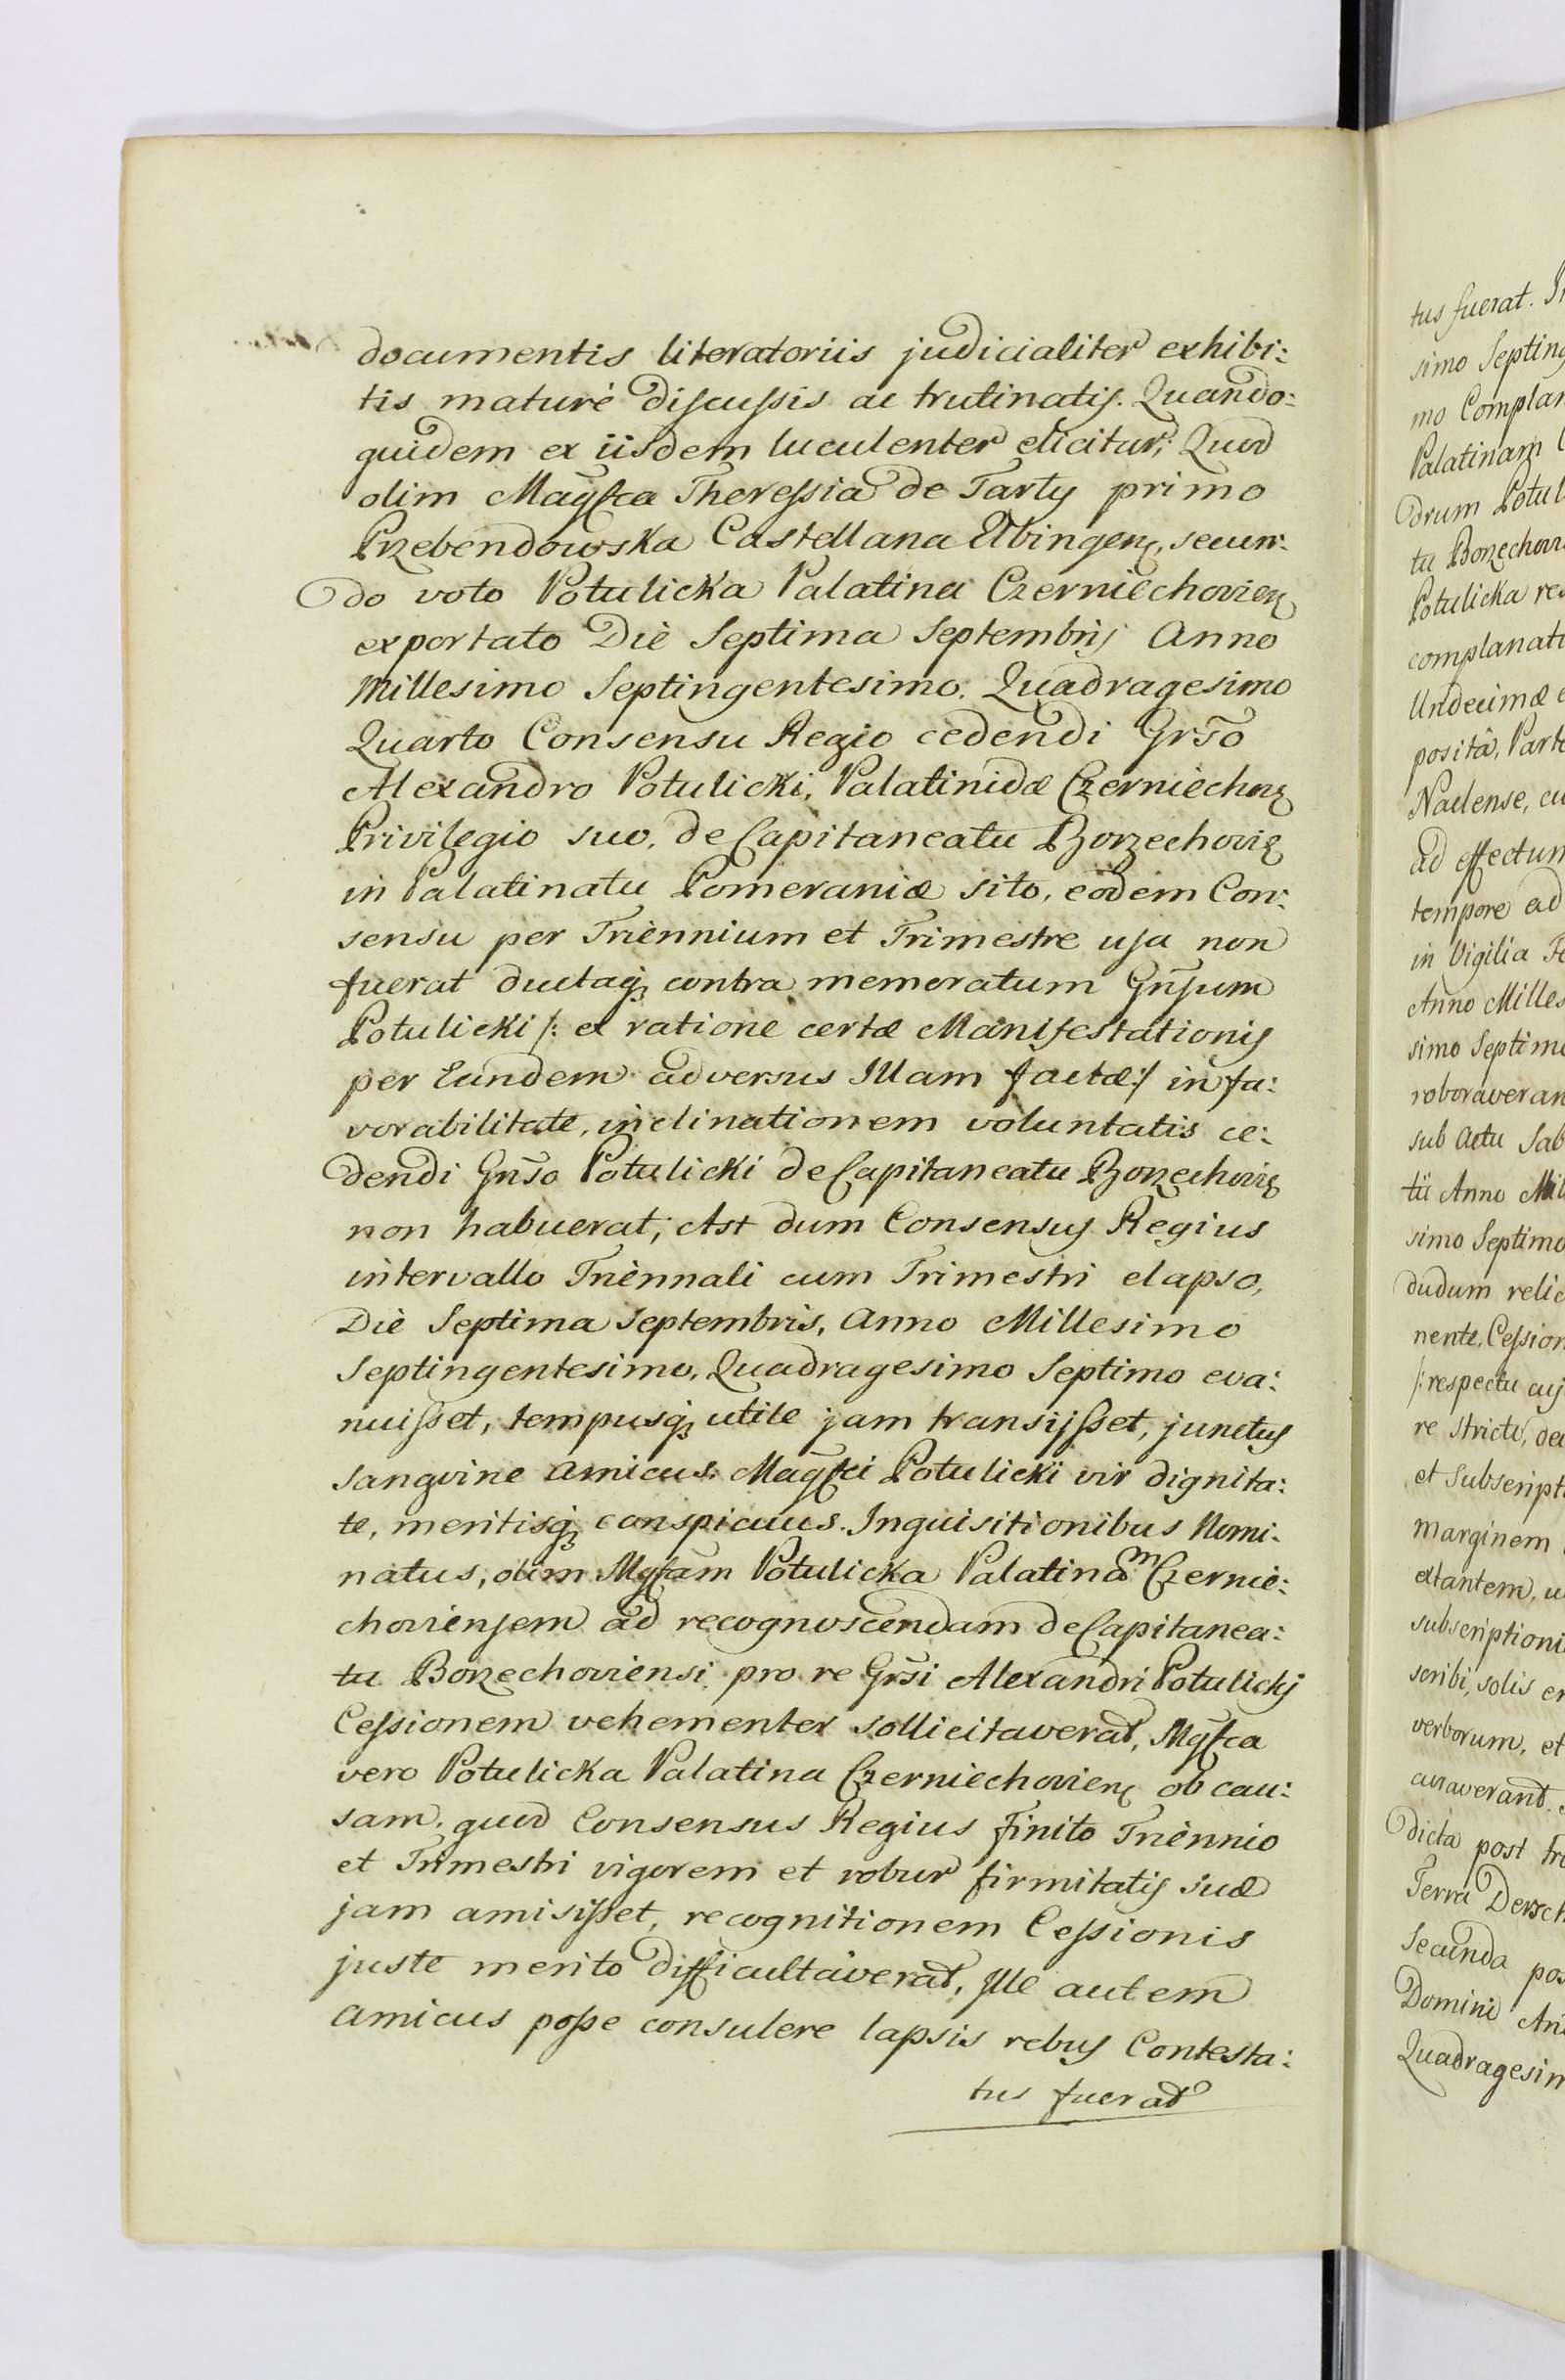 documentis literatoriis judicialiter exhibi:
tis maturé discussis ac trutinatis. Quando:
quidem ex iisdem luculenter elicitur; Quod
olim Magfca Theressia de Tarły primo
Przebendowska Castellana Elbingen, secun:
do voto Potulicka Palatina Czerniechovien
exportato Die Septima Septembris Anno
Millesimo Septingentesimo. Quadragesimo
Quarto Consensu Regio cedendi Grso
Alexandro Potulicki, Palatinidæ Czerniechov
Privilegio suo, de Capitaneatu Borzechovie
in Palatinatu Pomeraniæ sito, eodem Con:
sensu per Triennium et Trimestre usa non
fuerat ductaq; contra memoratum Gnsum
Potulicki /: ex ratione certæ Manifestationis
per Eundem adversus Illam factæ:/ in fa:
vorabilitate, inclinationem voluntatis ce:
dendi Gnso Potulicki de Capitaneatu Borzechovie
non habuerat; Ast dum Consensus Regius
intervallo Triennali cum Trimestri elapso,
Die Septima Septembris, Anno Millesimo
Septingentesimo, Quadragesimo Septimo eva:
nuisset, tempusq; utile jam transijsset, junctus
sangvine amicus Magfci Potulicki vir dignita:
te, meritisq; conspicuus. Inquisitionibus Nomi:
natus, olim Mgfcam Potulicka Palatinam Czernie:
choviensem ad recognoscendam de Capitanea:
tu Borzechoviensi pro re Grsi Alexandri Potulickj
Cessionem vehementer sollicitaverat, Mgfca
vero Potulicka Palatina Czerniechovien ob cau:
sam, quod Consensus Regius finito Triennio
et Trimestri vigorem et robur firmitatis suæ
jam amisisset, recognitionem Cessionis
juste merito difficultaverat, Ille autem
amicus posse consulere lapsis rebus Contesta:
tus fuerat
tus fuerat.
simo Septing
mo Complan
Palatinam
drum Potul
tu Borzechovi
Potulicka
complanati
Undecimæ
posità, Part
Naclense, cu
ad effectum
tempore ad
in Vigilia
Anno Milles
simo Septimo
roboraveran
sub Actu Sab
tii Anno Mil
simo Septimo
dudum relic
nente, Cession
/: respectu cuj
re stricte, de
et Subscript
marginem
extantem, u
subscriptioni
scribi, solis
verborum, et
curaverant.
dicta post
Terra Dersch
Secunda pos
Domini An
Quadragesim